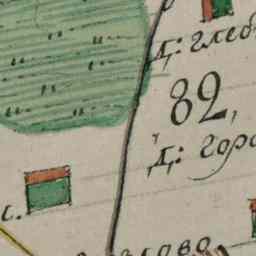 Д: глеб
82,
Д: горо
с.
лово